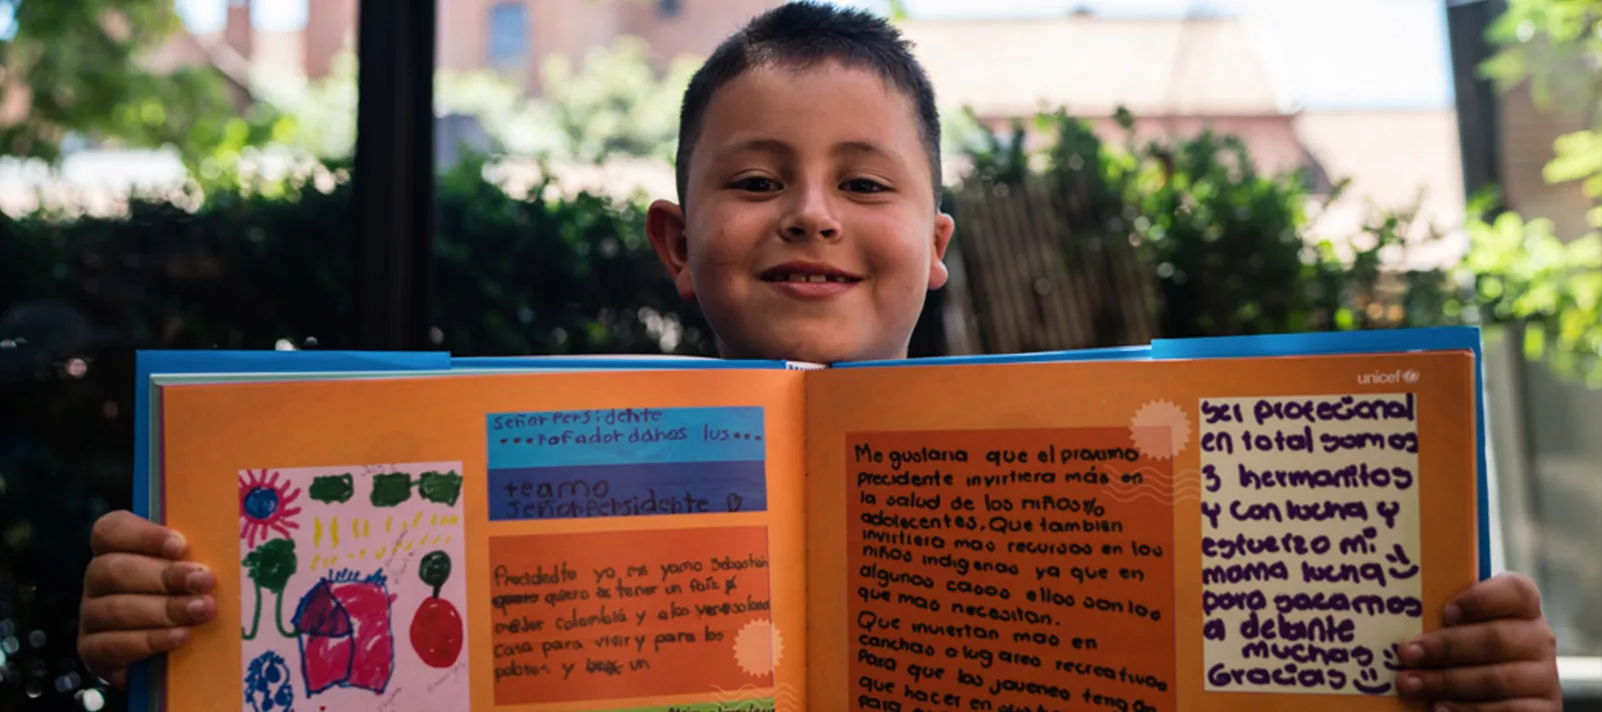 señor persidente
...porfador danos lus...
te amo
señor persidente
Precidedte yo me yamo Sebastian
quiero tener un País
mejor colombia y a los venesolanos
casa para vivir y para los
pobres y un
unicef
Me gustaria que el proximo
precidente invirtiera más en
la salud de los niños y/o
adolecentes. Que tambien
invirtiera mas recursos en los
niños indigenas ya que en
algunos casos ellos son los
que mas necesitan.
Que inviertan mas en
canchas o lugares recreativos
Para que los jovenes tengan
que hacer en
Para
ser profecional
en total somos
3 hermanitos
y con lucha y
esfuerzo mi
mama lucha
para sacarnos
a delante
muchas
Gracias